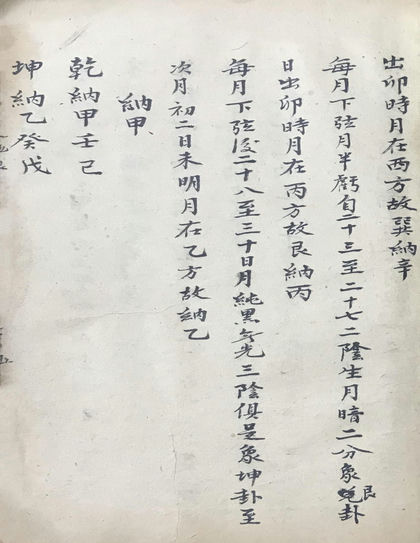 出卯時月在西方故巽納辛
每月下弦月半虧自二十三至二十七二陰生月暗二分象艮卦
日出卯時月在丙方故艮納丙
每月下弦后二十八至三十日月純黑無光三陰俱足象坤卦至
次月初二日未明月在乙方故納乙
納甲
乾納甲壬己
坤納乙癸戊